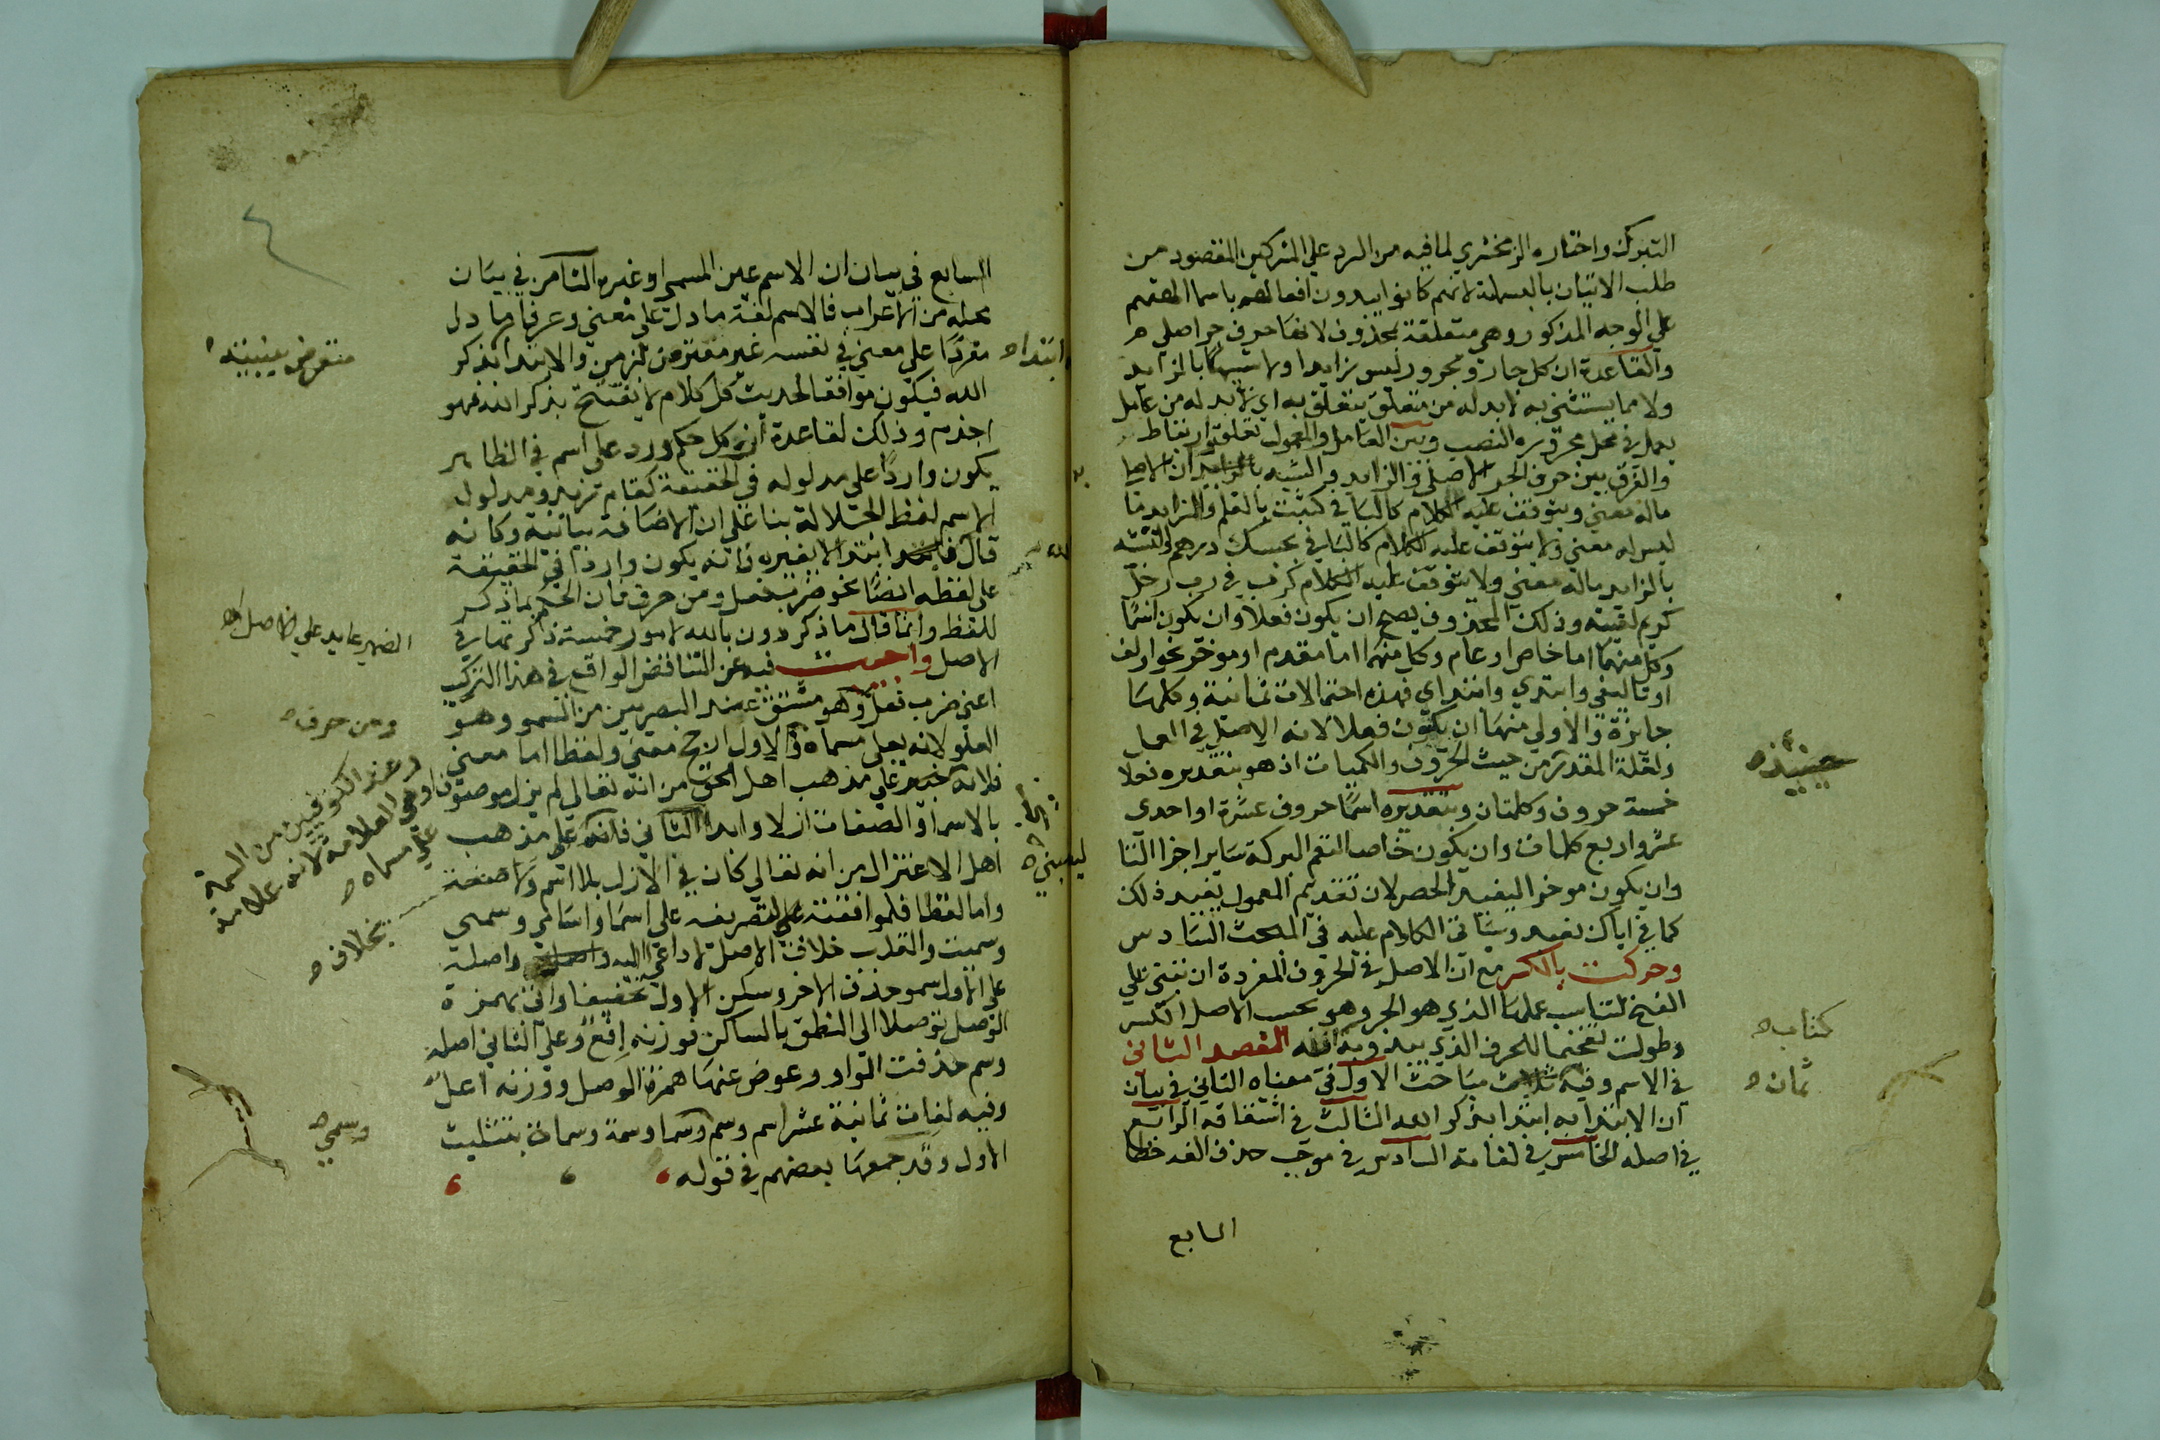 التبرك واختاره الزمخشري لما فيه من الرد علي المشركين المقصود من
طلب الاتيان بالبسملة لانهم كانوا يبدون افعالهم باسما الهتهم
علي الوجه المذكور وهي متعلقة بمحذوف لانها حرف جر اصلي
والقاعدة ان كل جار ومجرور ليس بزايد ولا شبيها بالزايد
ولا مما يستثني به لابد له من متعلق يتعلق به اي لابد له من عامل
يعمل في محل مجروره النصب وبين العامل والمعمول تعلق وارتباط
والفرق بين حرف الجر الاصلي والزايد والشبيه بالزايد ان الاصلي
ماله معني ويتوقف عليه الكلام كالبا في كتبت بالقلم والزايد ما
ليس له معني ولا يتوقف عليه الكلام كالبا في بحسبك درهم والشبيه
بالزايد ماله معني ولا يتوقف عليه الكلام كرب في رب رجل
كريم لقيته وذلك المحذوف يصح ان يكون فعلا وان يكون اسما
وكل منهما اما خاص او عام وكل منهما اما مقدم او موخر نحو اولف
او تاليفي وابتدي وابتداي فهذه احتمالات ثمانية وكلها
جائزة والاولي منها ان يكون فعلا لانه الاصل في العمل
ولقلة المقدر من حيث الحروف والكلمات اذ هو بتقديره فعلا
خمسة حروف وكلمتان وبتقديره اسما حروف عشرة او احدي
عشر واربع كلمات وان يكون خاصا لتعم البركة ساير اجزا التا
وان يكون موخرا ليفيد الحصر لان تقديم المعمول يفيد ذلك
كما في اياك نعبد وسياتي الكلام عليه في المبحث السادس
وحركت بالكسر مع ان الاصل في الحروف المفردة ان تبني علي
الفتح لتناسب عملها الذي هو الجر وهو بحسب الاصل الكسر
وطولت تفخيما للحرف الذي يبد وبه الله المقصد الثاني
في الاسم وفيه مباحث الاول في معناه الثاني في بيان
ان الابتدا به ابتدا بذكر الله الثالث في اشتقاقه الرابع
في اصله الخامس في لغاته السادس في موجب حذف الفه خطا
السابع
حينئذ
كتاب
ثمان
السابع في بيان ان الاسم عين المسمي او غيره الثامن في بيان
محله من الاعراب فالاسم لغة ما دل علي معني وعرفا ما دل
مفردا علي معني في نفسه غير مقترن بزمن والابتدا بذكر
الله فيكون موافقا لحديث كل كلام لا يفتتح بذكر الله فهو
اجذم وذلك لقاعدة ان كل حكم ورد علي اسم في الظاهر
يكون واردا علي مدلوله في الحقيقة كقام زيد ومدلول
الاسم لفظ الجلالة بنا علي ان الاضافة بيانية وكانه
قال ابتدا لا بغيره فانه يكون واردا في الحقيقة
علي لفظه ايضا نحو ضرب فعل ومن حرف فان الحكم بما ذكر
للفظ وانما قال ما ذكر دون بالله لامور خمسة ذاكرتها في
الاصل واجيب فيه عن التناقض الواقع في هذا التركيب
اعني ضرب فعل وهو مشتق عند البصريين من السمو وهو
العلو لانه يعلي مسماه والاول ارجح معني ولفظا اما معني
فلانه علي مذهب اهل الحق من انه تعالي لم يزل موصوفا
بالاسما والصفات ازلا وابدا الثاني فانه علي مذهب
اهل الاعتزال من انه تعالي كان في الازل بلا اسم ولا صفة
واما لفظا فلموافقته لتصريفه علي اسما واسامي وسمي
وسميت والقلب خلاف الاصل لا داعي اليه واصله
علي الاول سمو حذف الاخر وسكن الاول تخفيفا واتي بهمزة
الوصل توصلا الي النطق بالساكن فوزنه افع وعلي الثاني اصله
وسم حذفت الواو وعوض عنها همزة الوصل ووزنه اعل
وفيه لغات ثمانية عشر اسم وسم وسما وسمة وسماة بتثليث
الاول وقد جمعها بعضهم في قوله
ابتداه
الضمير عايد علي الاصل
ومن حرف
وعند الكوفيين من السمة
وهي العلامة لانه علامة
علي مسماه
بخلاف
وسمي